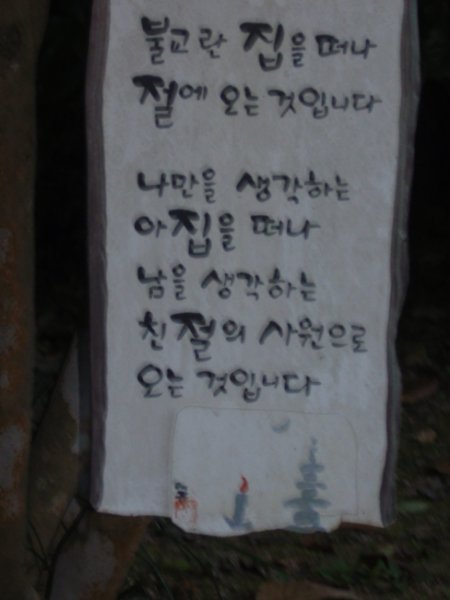 불교란 집을 떠나
절에 오는 것입니다
나만을 생각하는
아집을 떠나
남을 생각하는
친절의 사원으로
오는 것입니다